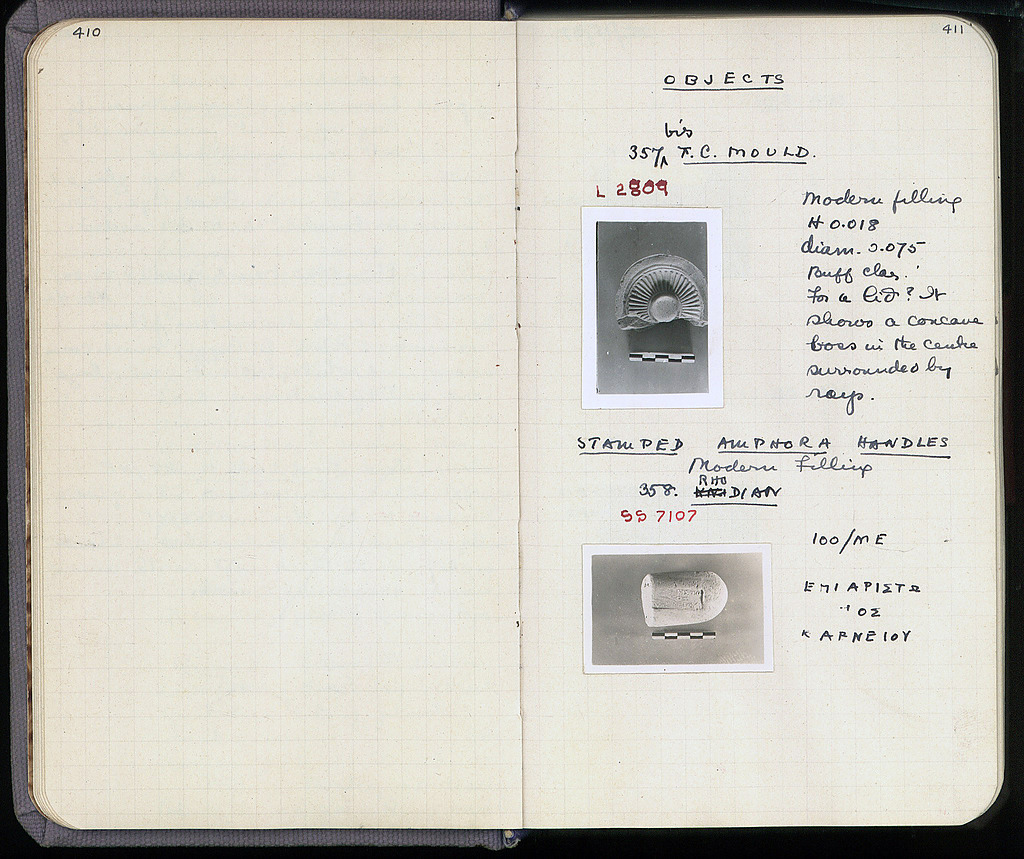 410
411
OBJECTS
bis
357 T.C. MOULD.
L 2809
Modern filling
H 0.018
diam. 0.075
Buff clay.
For a lid? It
shows a concave
boss in the centre
surrounded by
rays.
STAMPED AMPHORA HANDLES
Modern Filling
RHO
358. DIAN
SS 7107
100/ME
ΕΠΙ ΑΡΙΣΤΩ
ΟΣ
ΚΑΡΝΕΙΟΥ